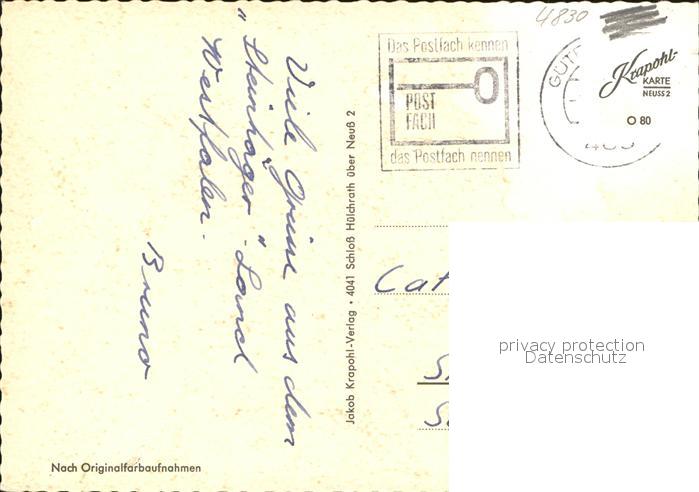 Viele Grüsse aus dem
"Steinhäger"-Land
Westfalen.
Bruno
Nach Originalfarbaufnahmen
Jakob Krapohl-Verlag • 4041 Schloß Hülchrath über Neuß 2
Das Postfach kennen
POST
FACH
das Postfach nennen
4830
GÜTE
Krapohl-
KARTE
NEUSS 2
O 80
Cat
privacy protection
Datenschutz